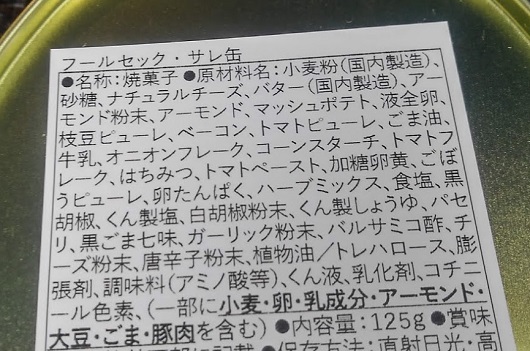 フールセック・サレ缶
●名称：焼菓子 ●原材料名：小麦粉（国内製造）、
砂糖、ナチュラルチーズ、バター（国内製造）、アー
モンド粉末、アーモンド、マッシュポテト、液全卵、
枝豆ピューレ、ベーコン、トマトピューレ、ごま油、
牛乳、オニオンフレーク、コーンスターチ、トマトフ
レーク、はちみつ、トマトペースト、加糖卵黄、ごぼ
うピューレ、卵たんぱく、ハーブミックス、食塩、黒
胡椒、くん製塩、白胡椒粉末、くん製しょうゆ、パセ
リ、黒ごま七味、ガーリック粉末、バルサミコ酢、チ
ーズ粉末、唐辛子粉末、植物油／トレハロース、膨
張剤、調味料（アミノ酸等）、くん液、乳化剤、コチニ
ール色素、（一部に小麦・卵・乳成分・アーモンド・
大豆・ごま・豚肉を含む） ●内容量：125g ●賞味
●保存方法：直射日光・高